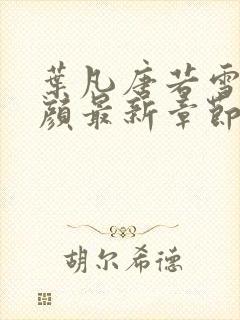 葉凡唐若雪
顔最新章節
胡尔希德